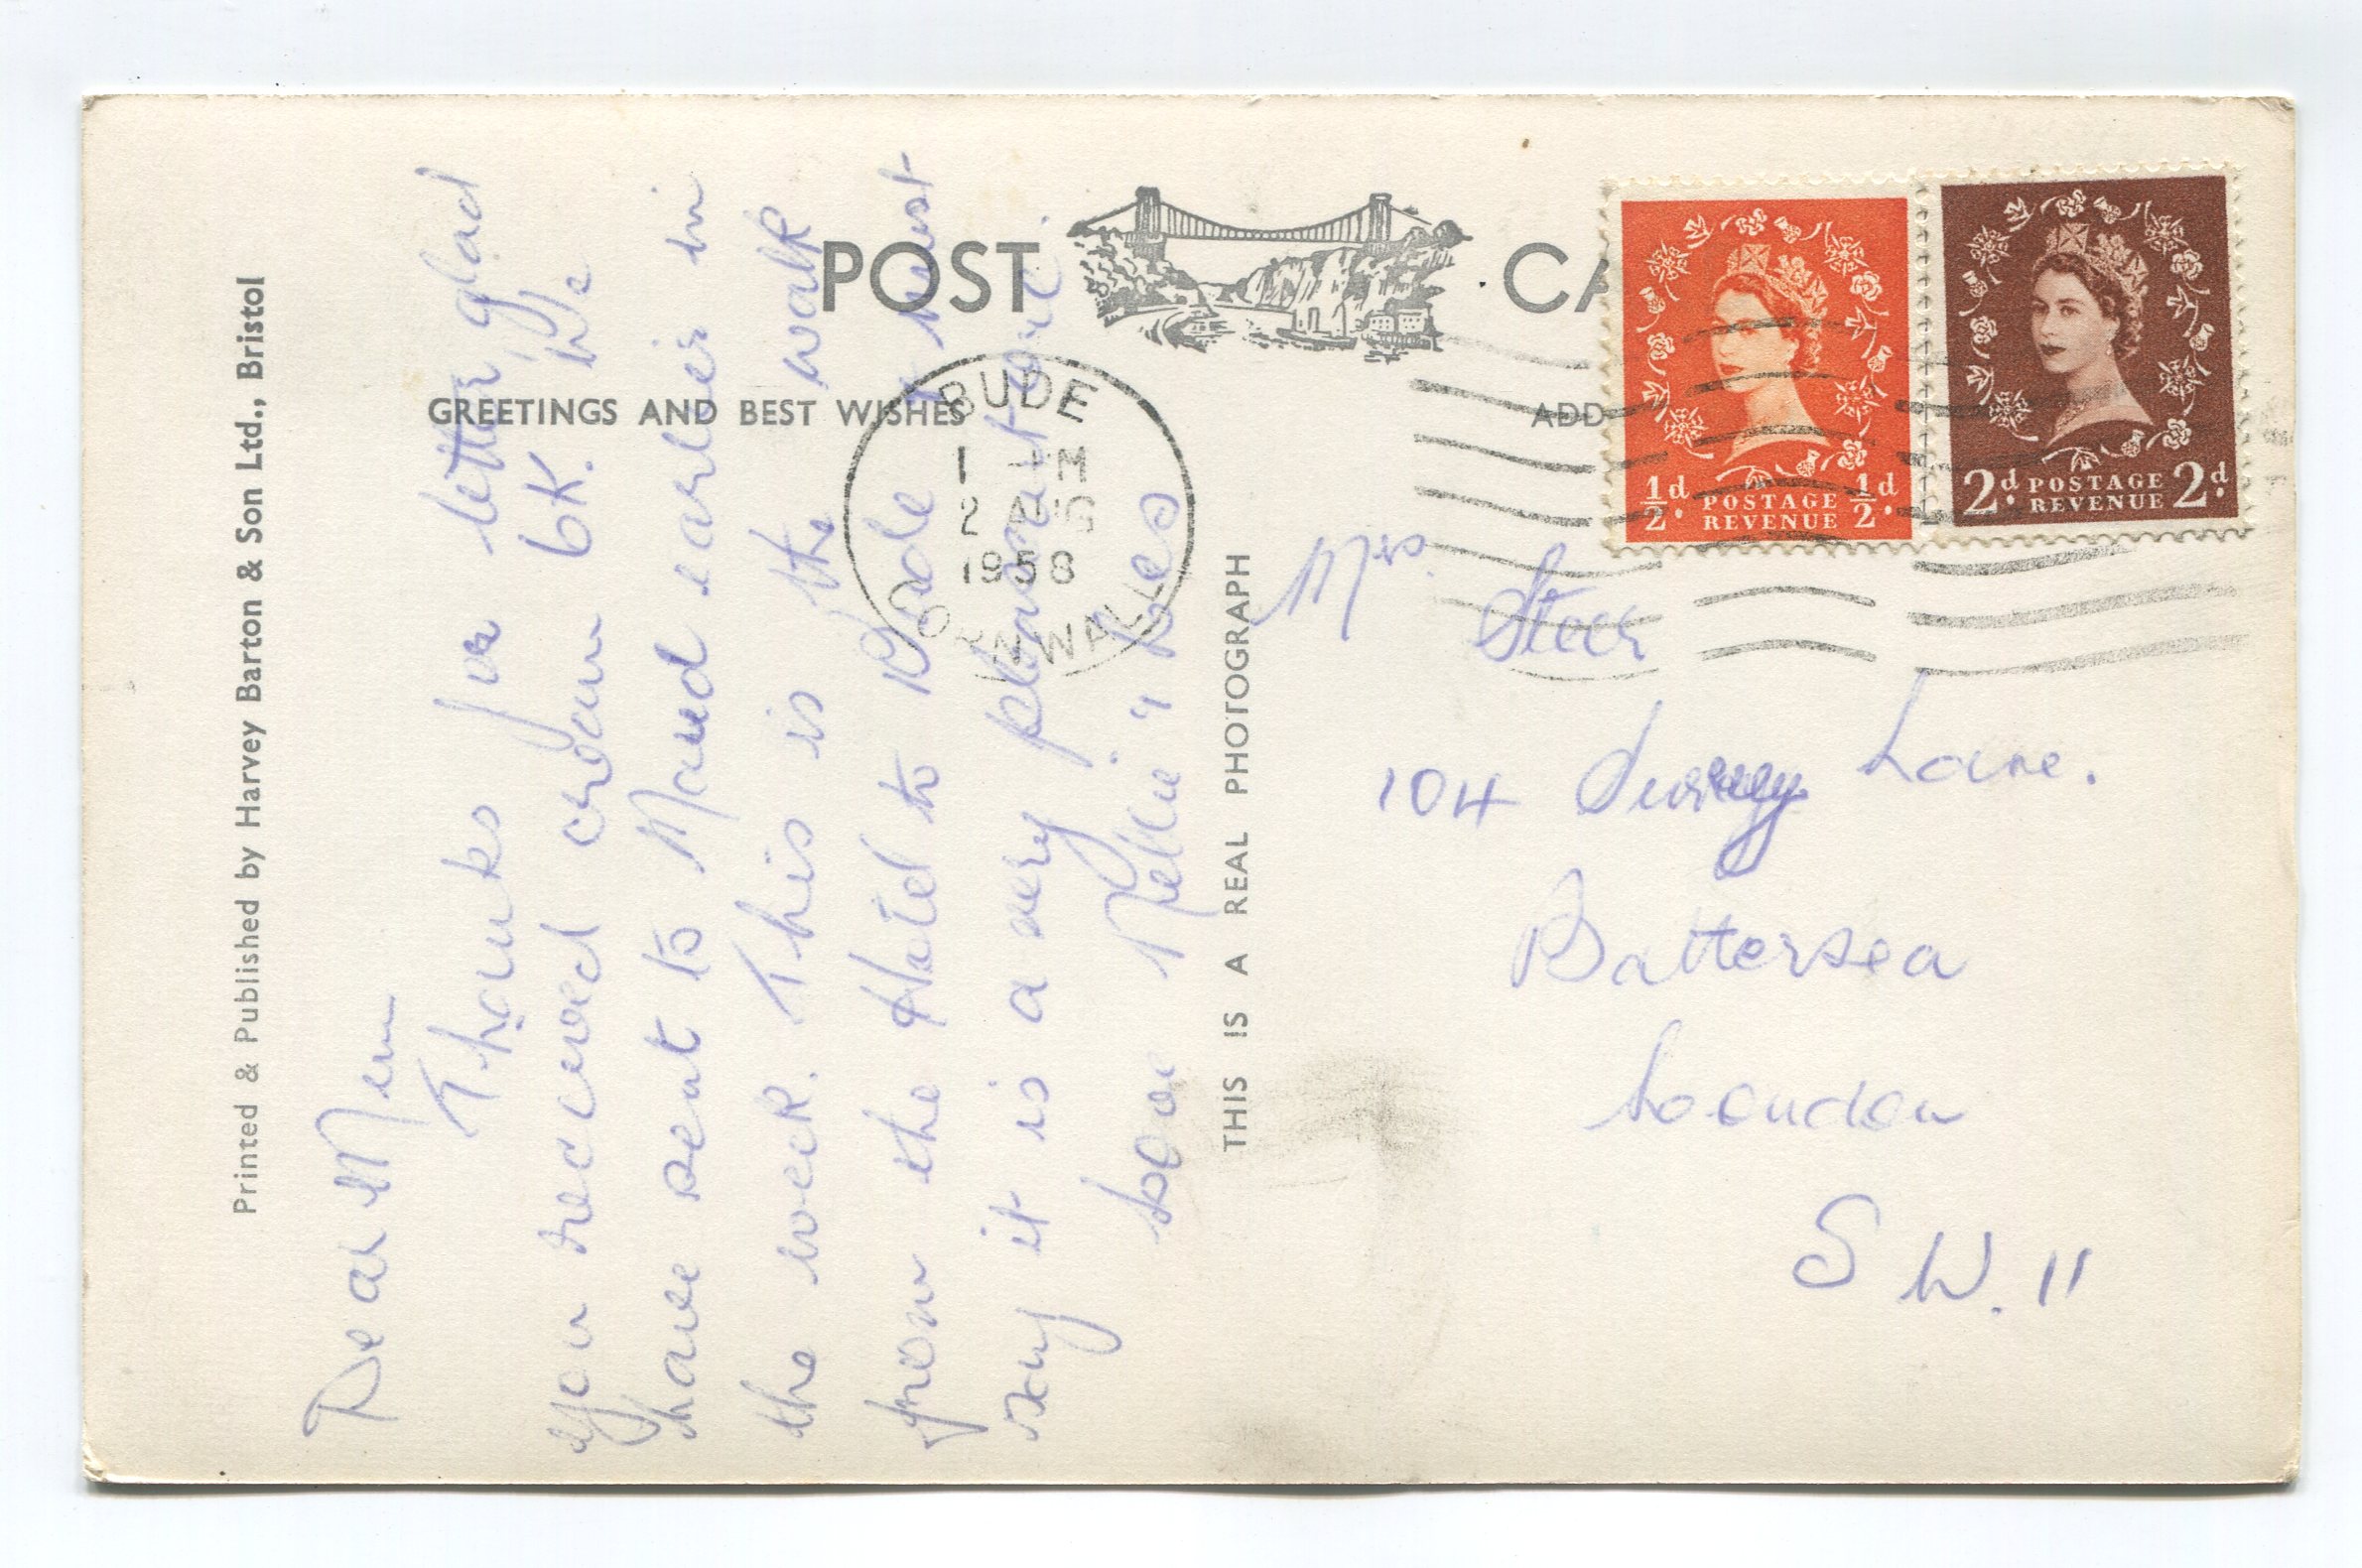 Printed & Published by Harvey Barton & Son Ltd., Bristol
POST CA
GREETINGS AND BEST WISHES
ADD
THIS IS A REAL PHOTOGRAPH
BUDE
1 - M
2 AUG
1958
CORNWALL
½d. POSTAGE ½d.
REVENUE
2d. POSTAGE 2d.
REVENUE
Dear Mem
Thanks for letter, glad
you received cream OK. We
have sent to Maud earlier in
the week. This is the walk
from the Hotel to Bude & must
say it is a very pleasant one.
Love Nellie & Les
Mrs. Steer
104 Surrey Lane.
Battersea
London
S W. 11